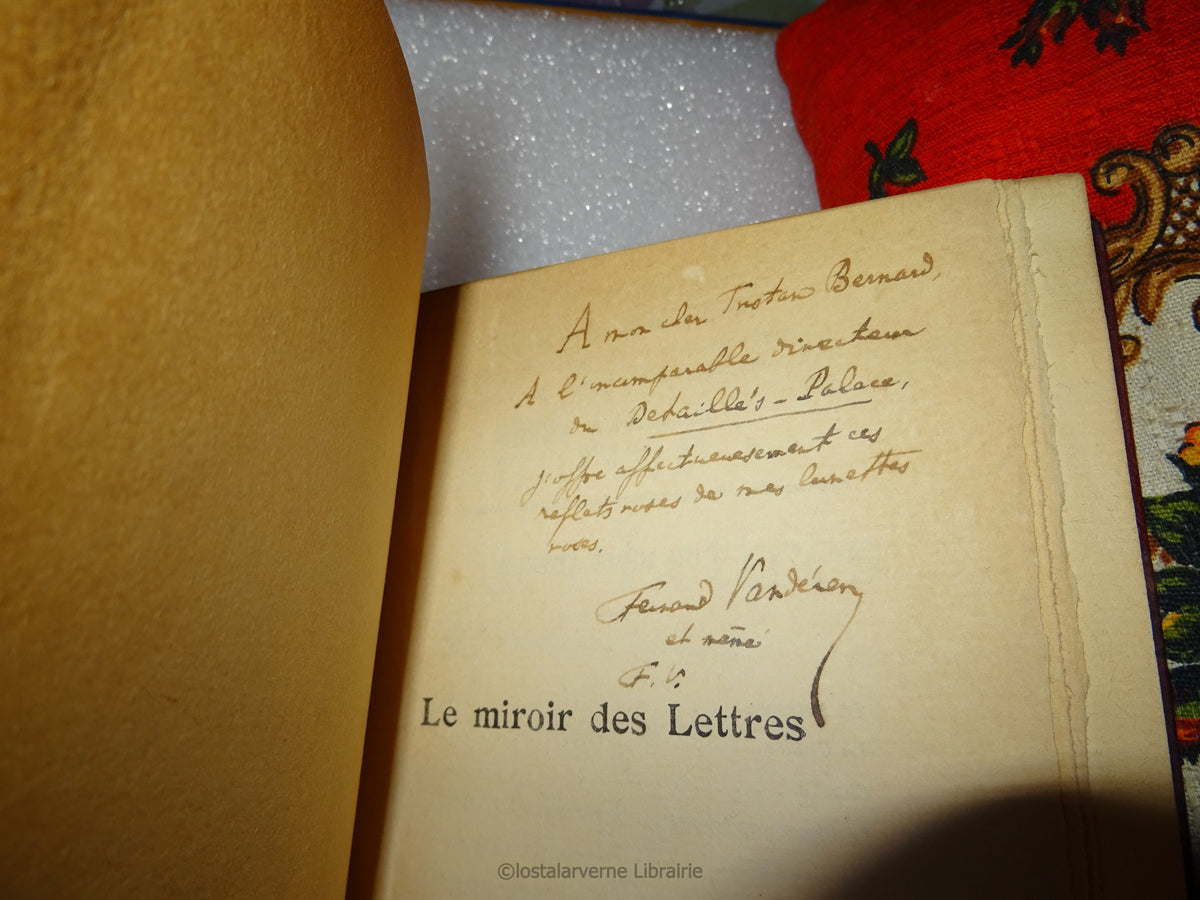 A mon cher Tristan Bernard,
A l'incomparable directeur
du Detaillé's-Palace,
j'offre affectueusement ces
reflets roses de mes lunettes
roses.
Fernand Vandérem
et même
F. V.
Le miroir des Lettres
©lostalarverne Librairie